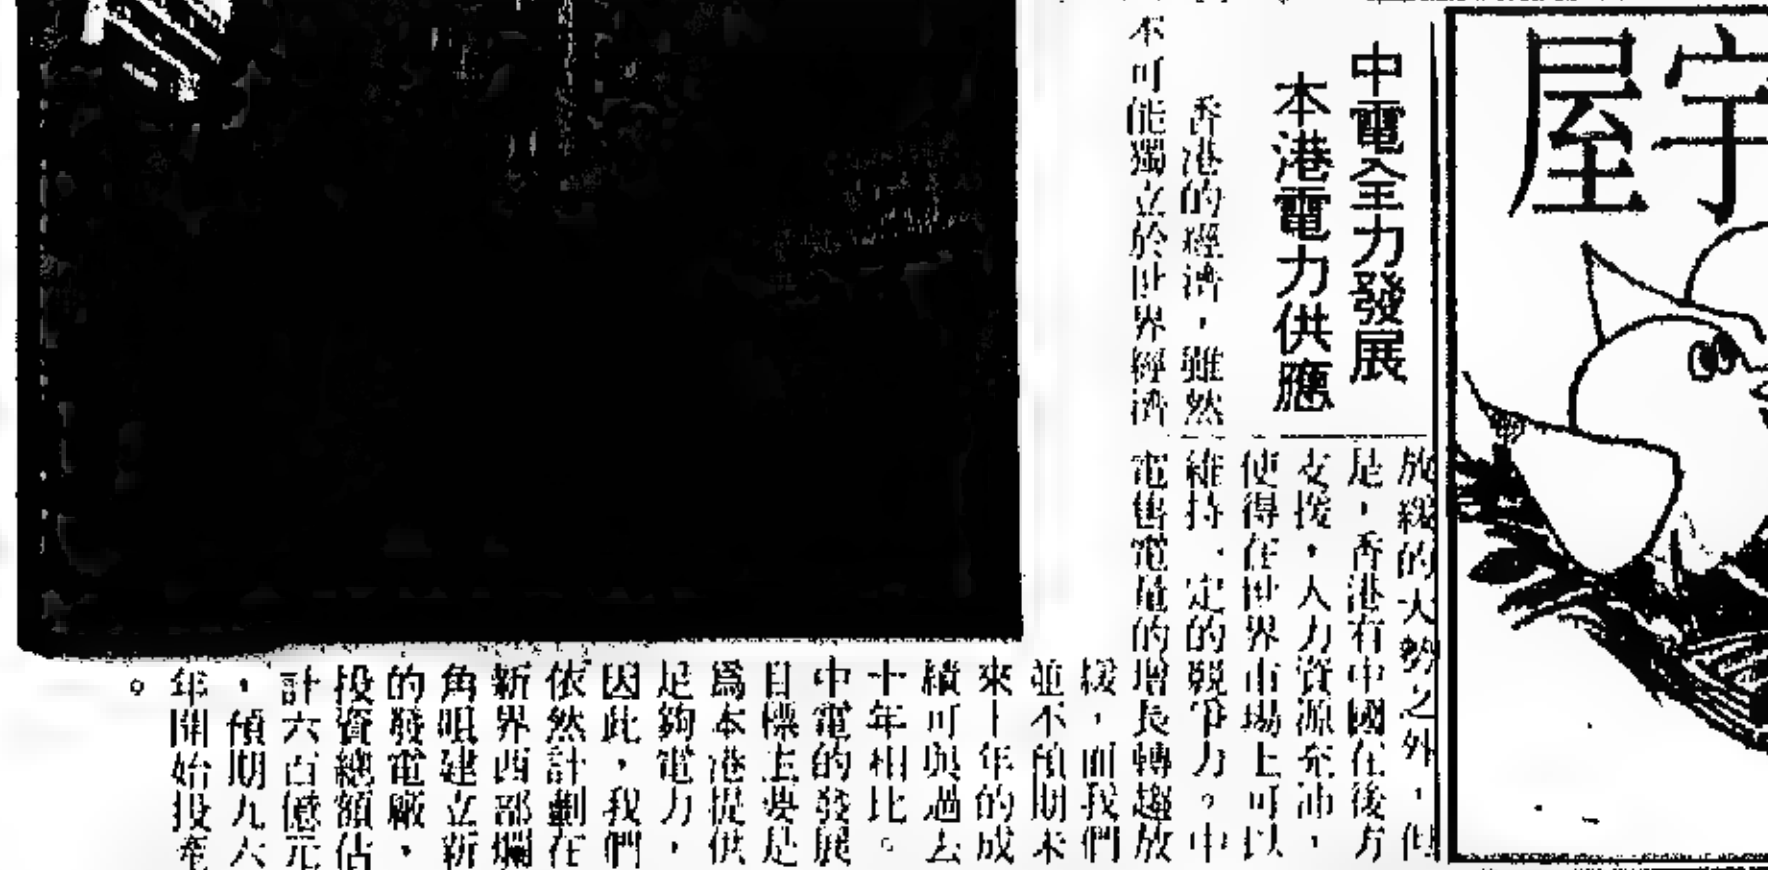 宇
屋
中電全力發展
本港電力供應
香港的經濟，雖然
不可能獨立於世界經濟
放緩的大勢之外，但
是，香港有中國在後方
支援，人力資源充沛，
使得在世界市場上可以
維持一定的競爭力。中
電售電量的增長轉趨放
緩，而我們
並不預期未
來十年的成
績可與過去
十年相比。
中電的發展
目標主要是
為本港提供
足夠電力，
因此，我們
依然計劃在
新界西部爛
角咀建立新
的發電廠，
投資總額估
計六百億元
，預期九六
年開始投產
。